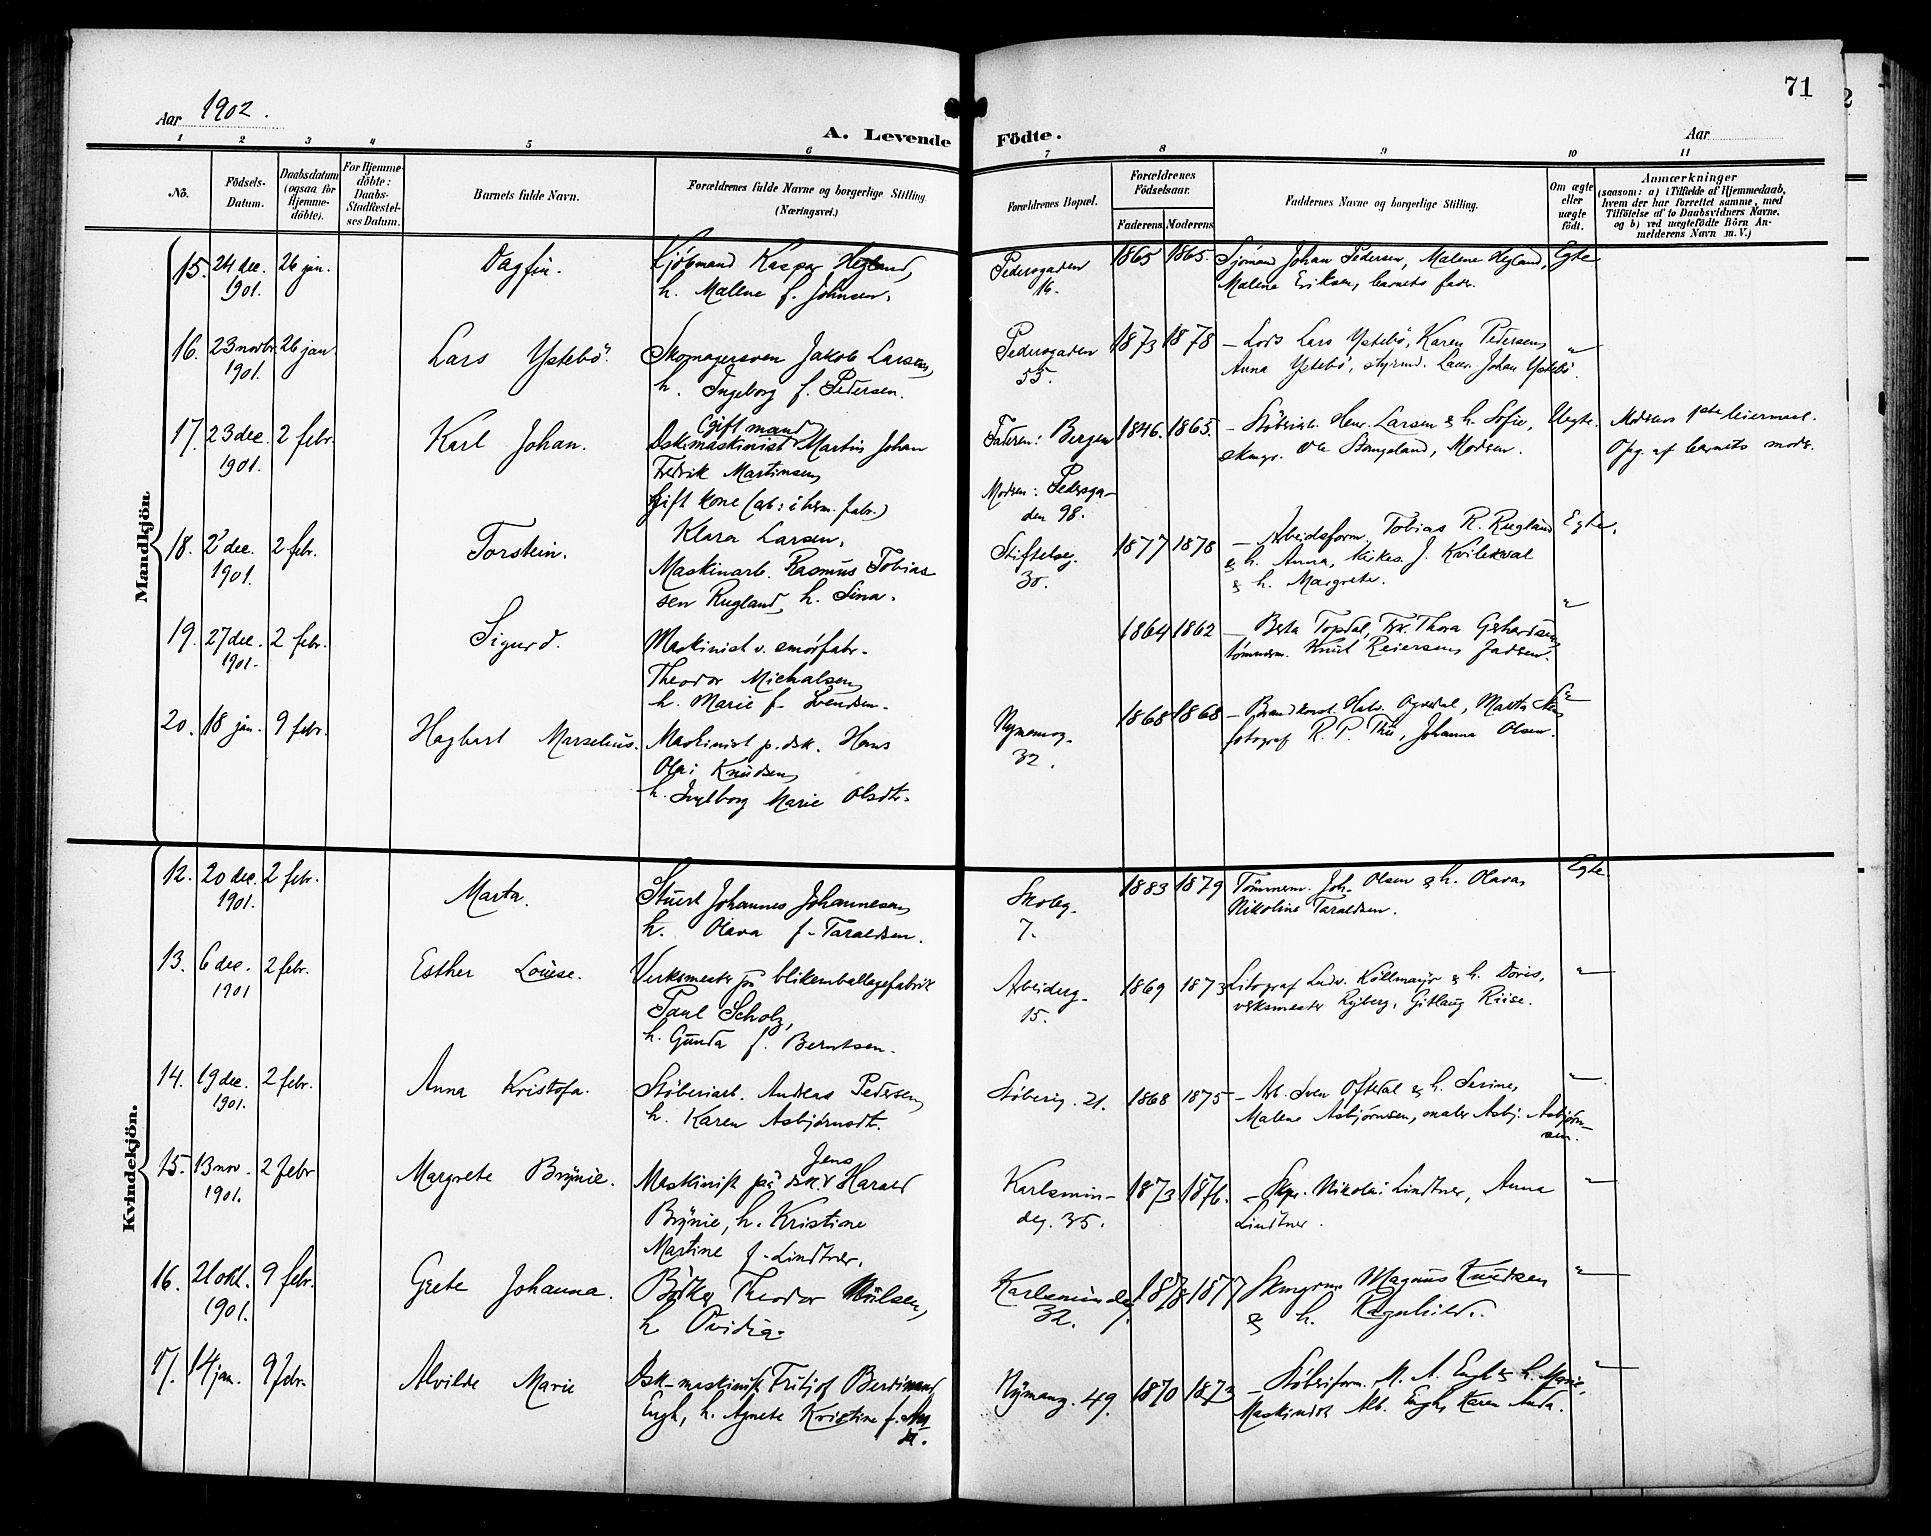 Aar 1902.
A. Levende Födte.
Aar
71
1 2 3 4 5 6 7 8 9 10 11
No.
Födsels-Datum.
Daabsdatum (ogsaa for Hjemme-döbte).
For Hjemme-döbte: Daabs-Stadfæstel-ses Datum.
Barnets fulde Navn.
Forældrenes fulde Navne og borgerlige Stilling (Næringsvei.)
Forældrenes Bopæl.
Forældrenes Födselsaar.
Faderens Moderens
Faddernes Navne og borgerlige Stilling.
Om ægte eller uægte födt.
Anmærkninger
(saasom: a) i Tilfælde af Hjemmedaab,
hvem der har forrettet samme, med
Tilföielse af to Daabsvidners Navne,
og b) ved uægtefödte Börn An-
melderens Navn m. V.)
Mandkjön.
15. 24 dec. 1901. 26 jan. Dagfin.
Kjöbmand Kasper Hegland,
h. Malene f. Johnsen.
Pedersgaden 16.
1865 1865.
Sjömand Johan Pedersen, Malene Hegland,
Malene Eriksen, barnets fader.
Egte
16. 23 novbr. 1901. 26 jan. Lars Ystebö.
Skomagersven Jakob Larsen,
h. Ingeborg f. Pedersen.
Pedersgaden 55.
1873 1878
– Lods Lars Ystebö, Karen Pedersen,
Anna Ystebö, styrmd. Laur. Johan Ystebö.
"
17. 23 dec. 1901. 2 febr. Karl Johan.
(gift mand)
Dskmaskinist Martin Johan
Fredrik Martinsen
Gift kone (arb: i herm. fabr.)
Klara Larsen.
Faderen: Bergen
Moderen: Pedersga-
den 98.
1846. 1865.
– Stöberiarb. Henr. Larsen & h. Sofie,
skmgr. Ole Stangeland, Moderen.
Uegte.
Moderens 1ste leiermaal.
Opg. af barnets moder.
18. 2 dec. 1901. 2 febr. Torstein.
Maskinarb. Rasmus Tobias-
sen Rugland, h. Sina.
Stiftelseg. 30.
1877 1878
– Arbeidsform. Tobias R. Rugland
& h. Anna, J. Kvilekval
& h. Margrete.
Egte.
19. 27 dec. 1901. 2 febr. Sigurd.
Maskinist v. smörfabr.
Theodor Michalsen,
h. Marie f. Svendsen.
1864 1862
– Berta Topdal, Frk. Thora Gerhardsen,
tömmerm. Knut Reiersen Jadsen.
"
20. 18 jan. 9 febr. Hagbart Marselius.
Maskinist p. dsk. Hans
Olai Knudsen,
h. Ingeborg Marie Olsdtr.
Nymansg. 32.
1868 1868
– Brandkonst. Halv. Ogredal, Marta
fotograf R. P. Thu, Johanna Olsen.
"
Kvindekjön.
12. 20 dec. 1901. 2 febr. Marta.
Stuert Johannes Johannesen,
h. Olava f. Taraldsen.
Skoleg. 7.
1883 1879
Tömmerm. Joh. Olsen & h. Olava,
Nikoline Taraldsen.
Egte
13. 6 dec. 1901 2 febr. Esther Louise.
Verksmester på blikemballagefabrik
Paul Scholz,
h. Gunda f. Berntsen.
Arbeiderg. 15.
1869 1873
Litograf Ludv. Köllmayr & h. Doris,
verksmester Ryberg, Gitlaug Riise.
"
14. 19 dec. 1901. 2 febr. Anna Kristofa.
Stöberiarb. Andreas Pedersen,
h. Karen Asbjörnsdt.
Stöberig. 21.
1868 1875
– Arb. Sven Oftedal & h. Serine,
Malene Asbjörnsen, maler Asbj. Asbjörn-
sen.
"
15. 13 nov. 1901. 2 febr Margrete Brynie.
Jens
Maskinist på dsk. Harald
Brynie, h. Kristine
Martine f. Lindtner.
Karlsmin-
deg. 35.
1873 1876.
– Skpr. Nikolai Lindtner, Anna
Lindtner.
"
16. 21 okt. 1901. 9 febr. Grete Johanna.
Bödker Theodor Nilsen,
h. Ovidia.
Karlsmindeg. 32.
1878 1877
Skmgrm. Magnus Knudsen
& h. Ragnhild.
"
17. 14 jan. 9 febr. Alvilde Marie
Dsk-maskinist Fritjof Berdinand
Engh, h. Agnete Kristine f.
Nymansg. 49.
1870 1873
– Stöberiform. M. A. Engh & h. Marie,
Maskinist Alb. Engh, Karen Anda.
"